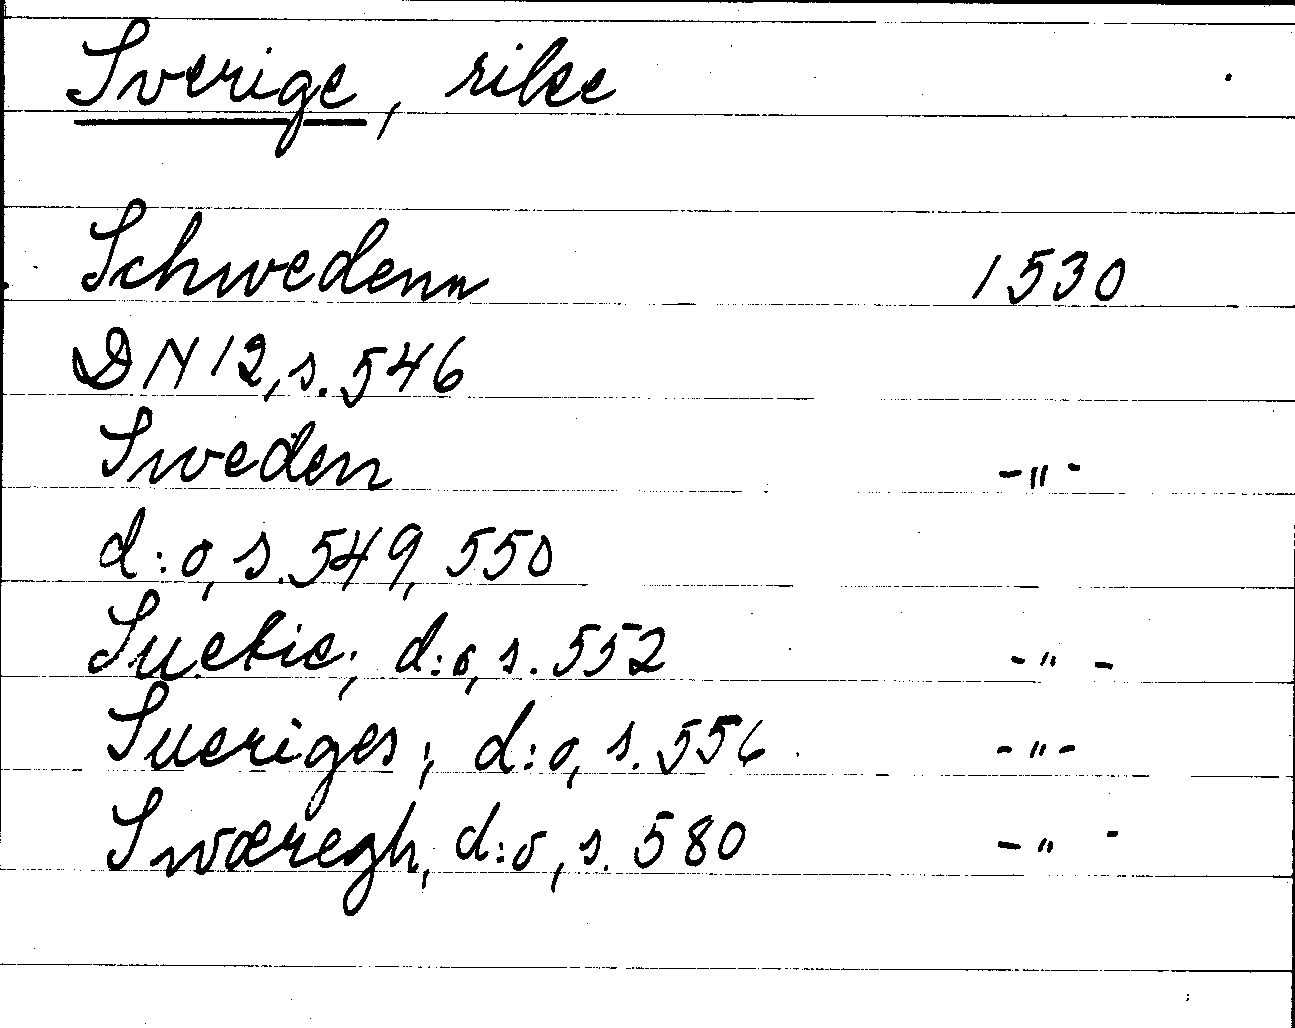 Sverige, rike
Schwedenn 1530
DN 12, s. 546
Sweden -"-
d:o, s. 549, 550
Suetie; d:o, s. 552 -"-
Sueriges; d:o, s. 556 -"-
Swæregh, d:o, s. 580 -"-